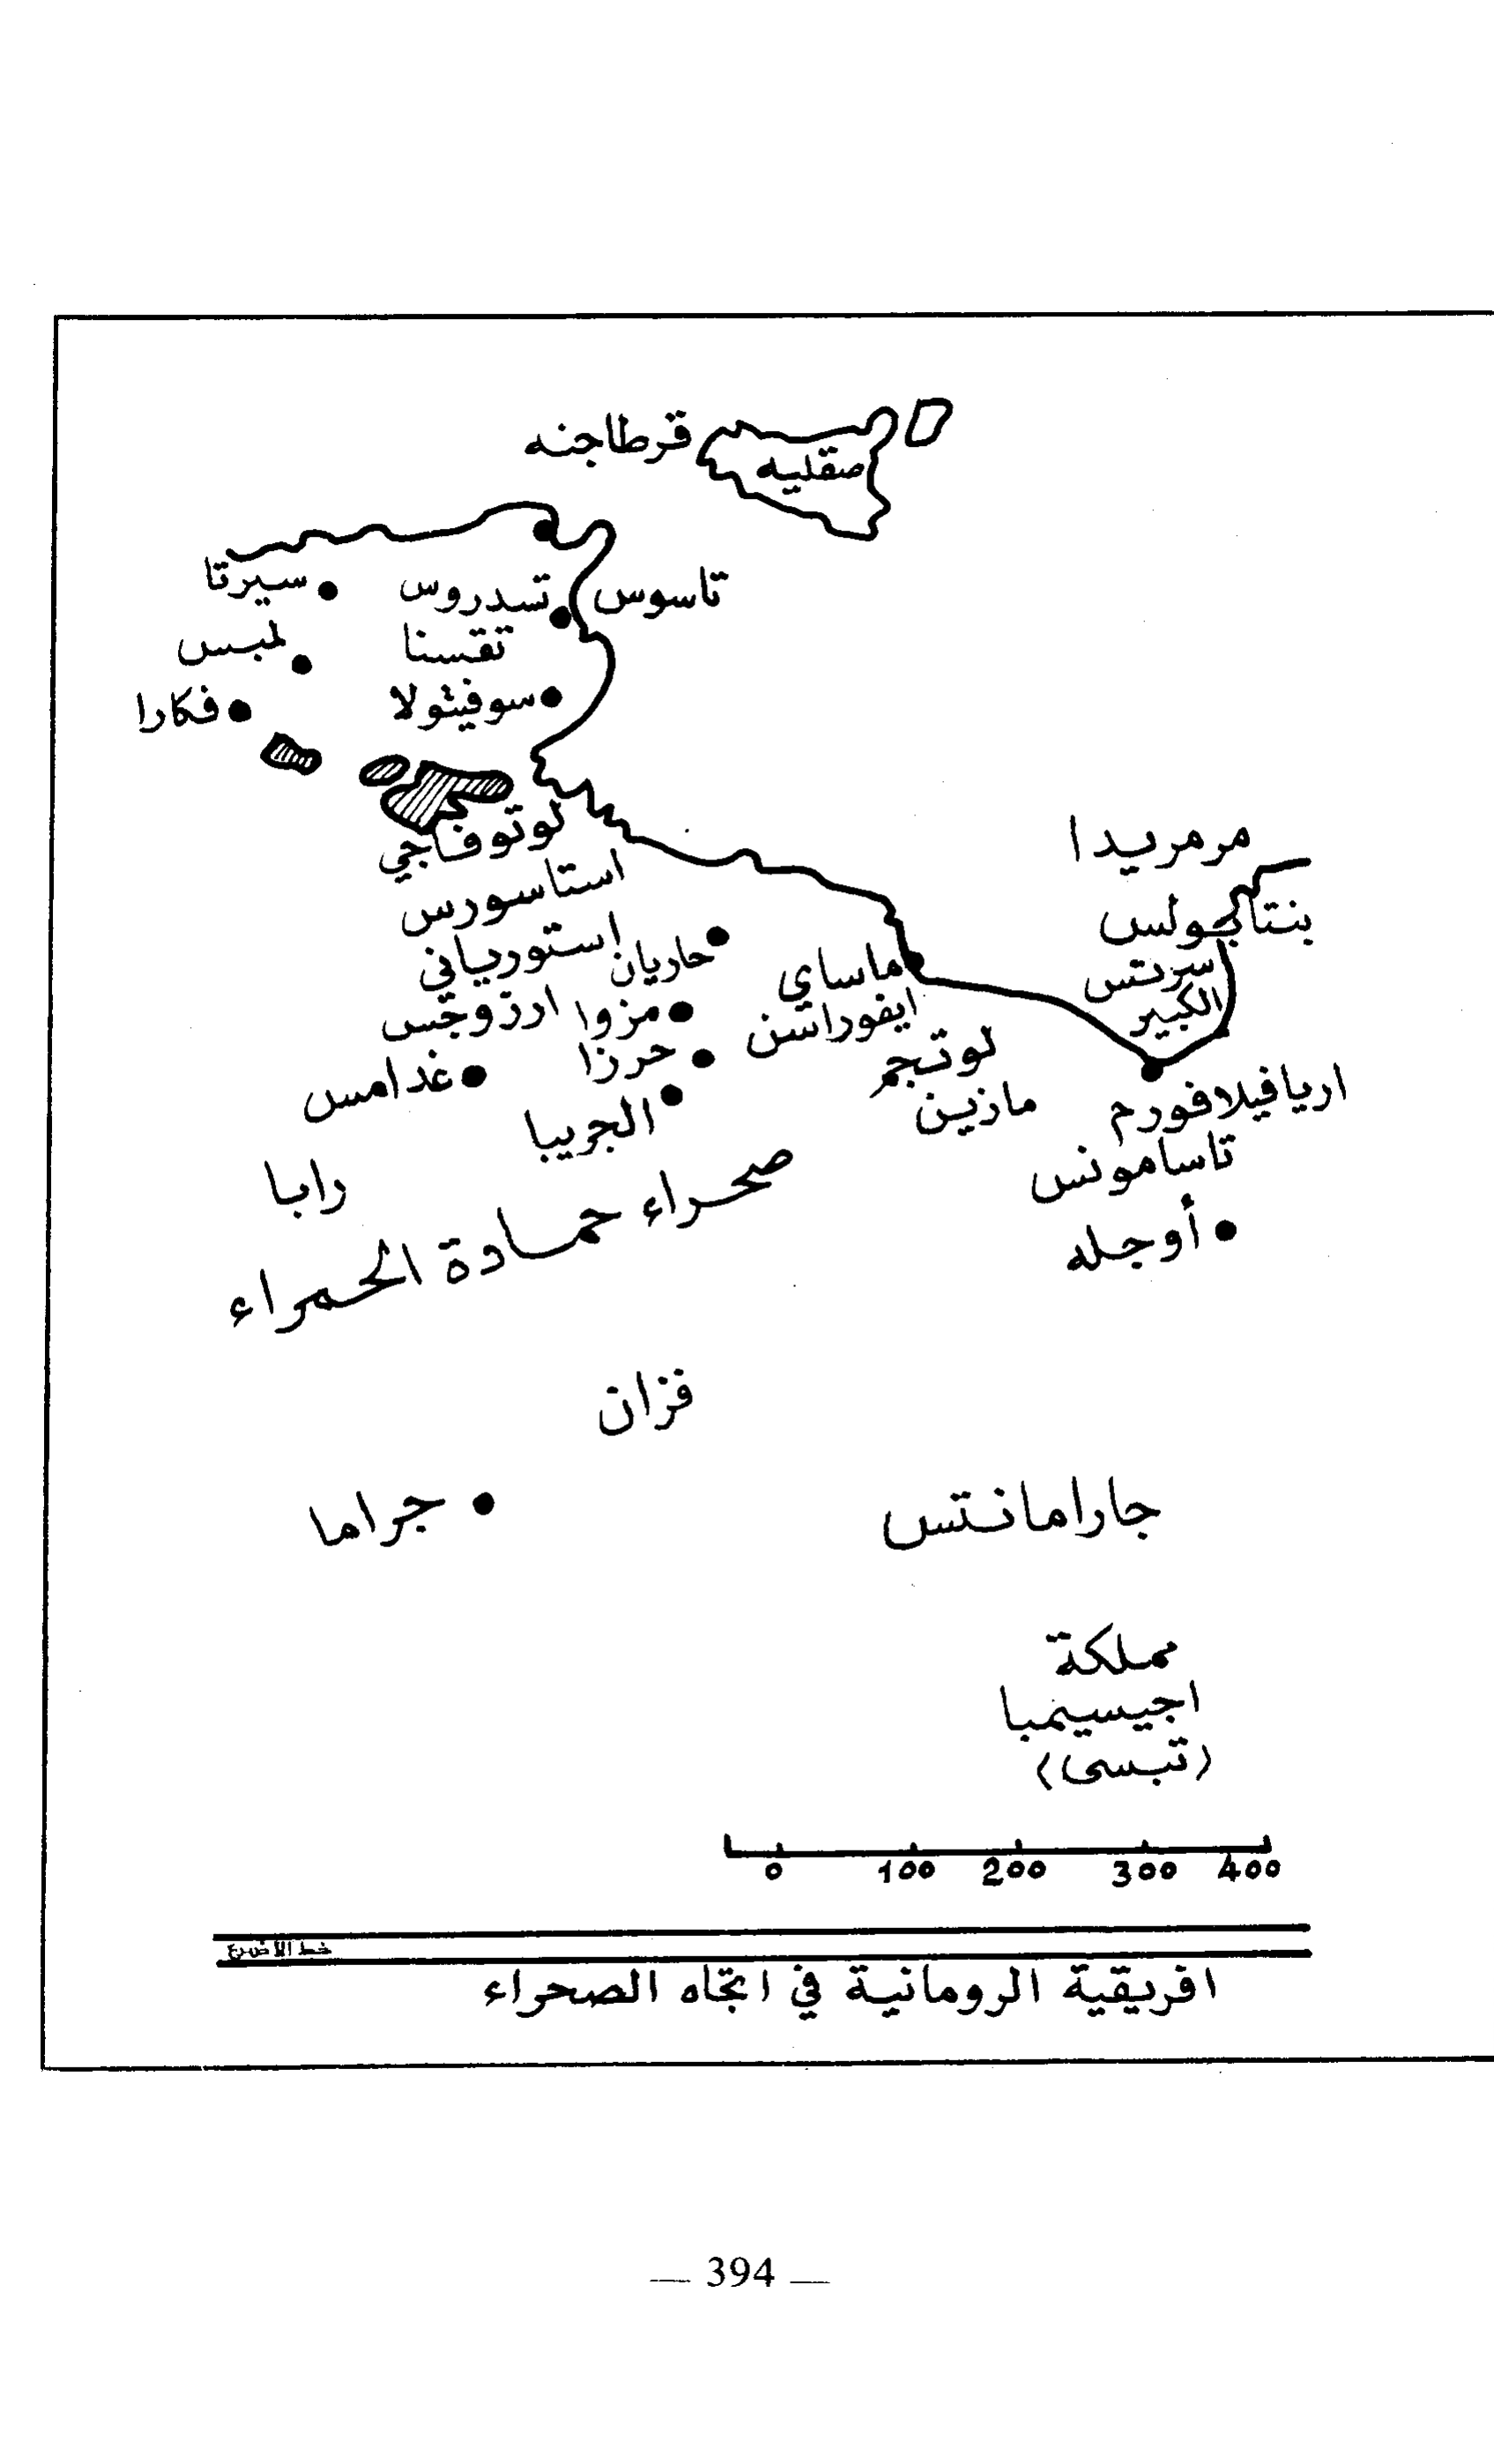 قرطاجنه
صقليه
سيرتا
تسدروس
تاسوس
لمبس
تقسنا
فكارا
سوفيثولا
لوتوفاجي
مرمريدا
استاسورس
بنتابولس
استوربياني
حاريان
ماساي
سرتس
الكبير
ارزوجس
مزوا
ايفوراتسن
غدامس
حرزا
لوتجم
الجريبا
مازين
اريافيلافورم
تاسامونس
رابا
صحراء حمادة الحمراء
أوجله
فزان
جراما
جارامانتس
مملكة
اجيسيمبا
(تبسى)
0 100 200 300 400
افريقية الرومانية في اتجاه الصحراء
— 394 —